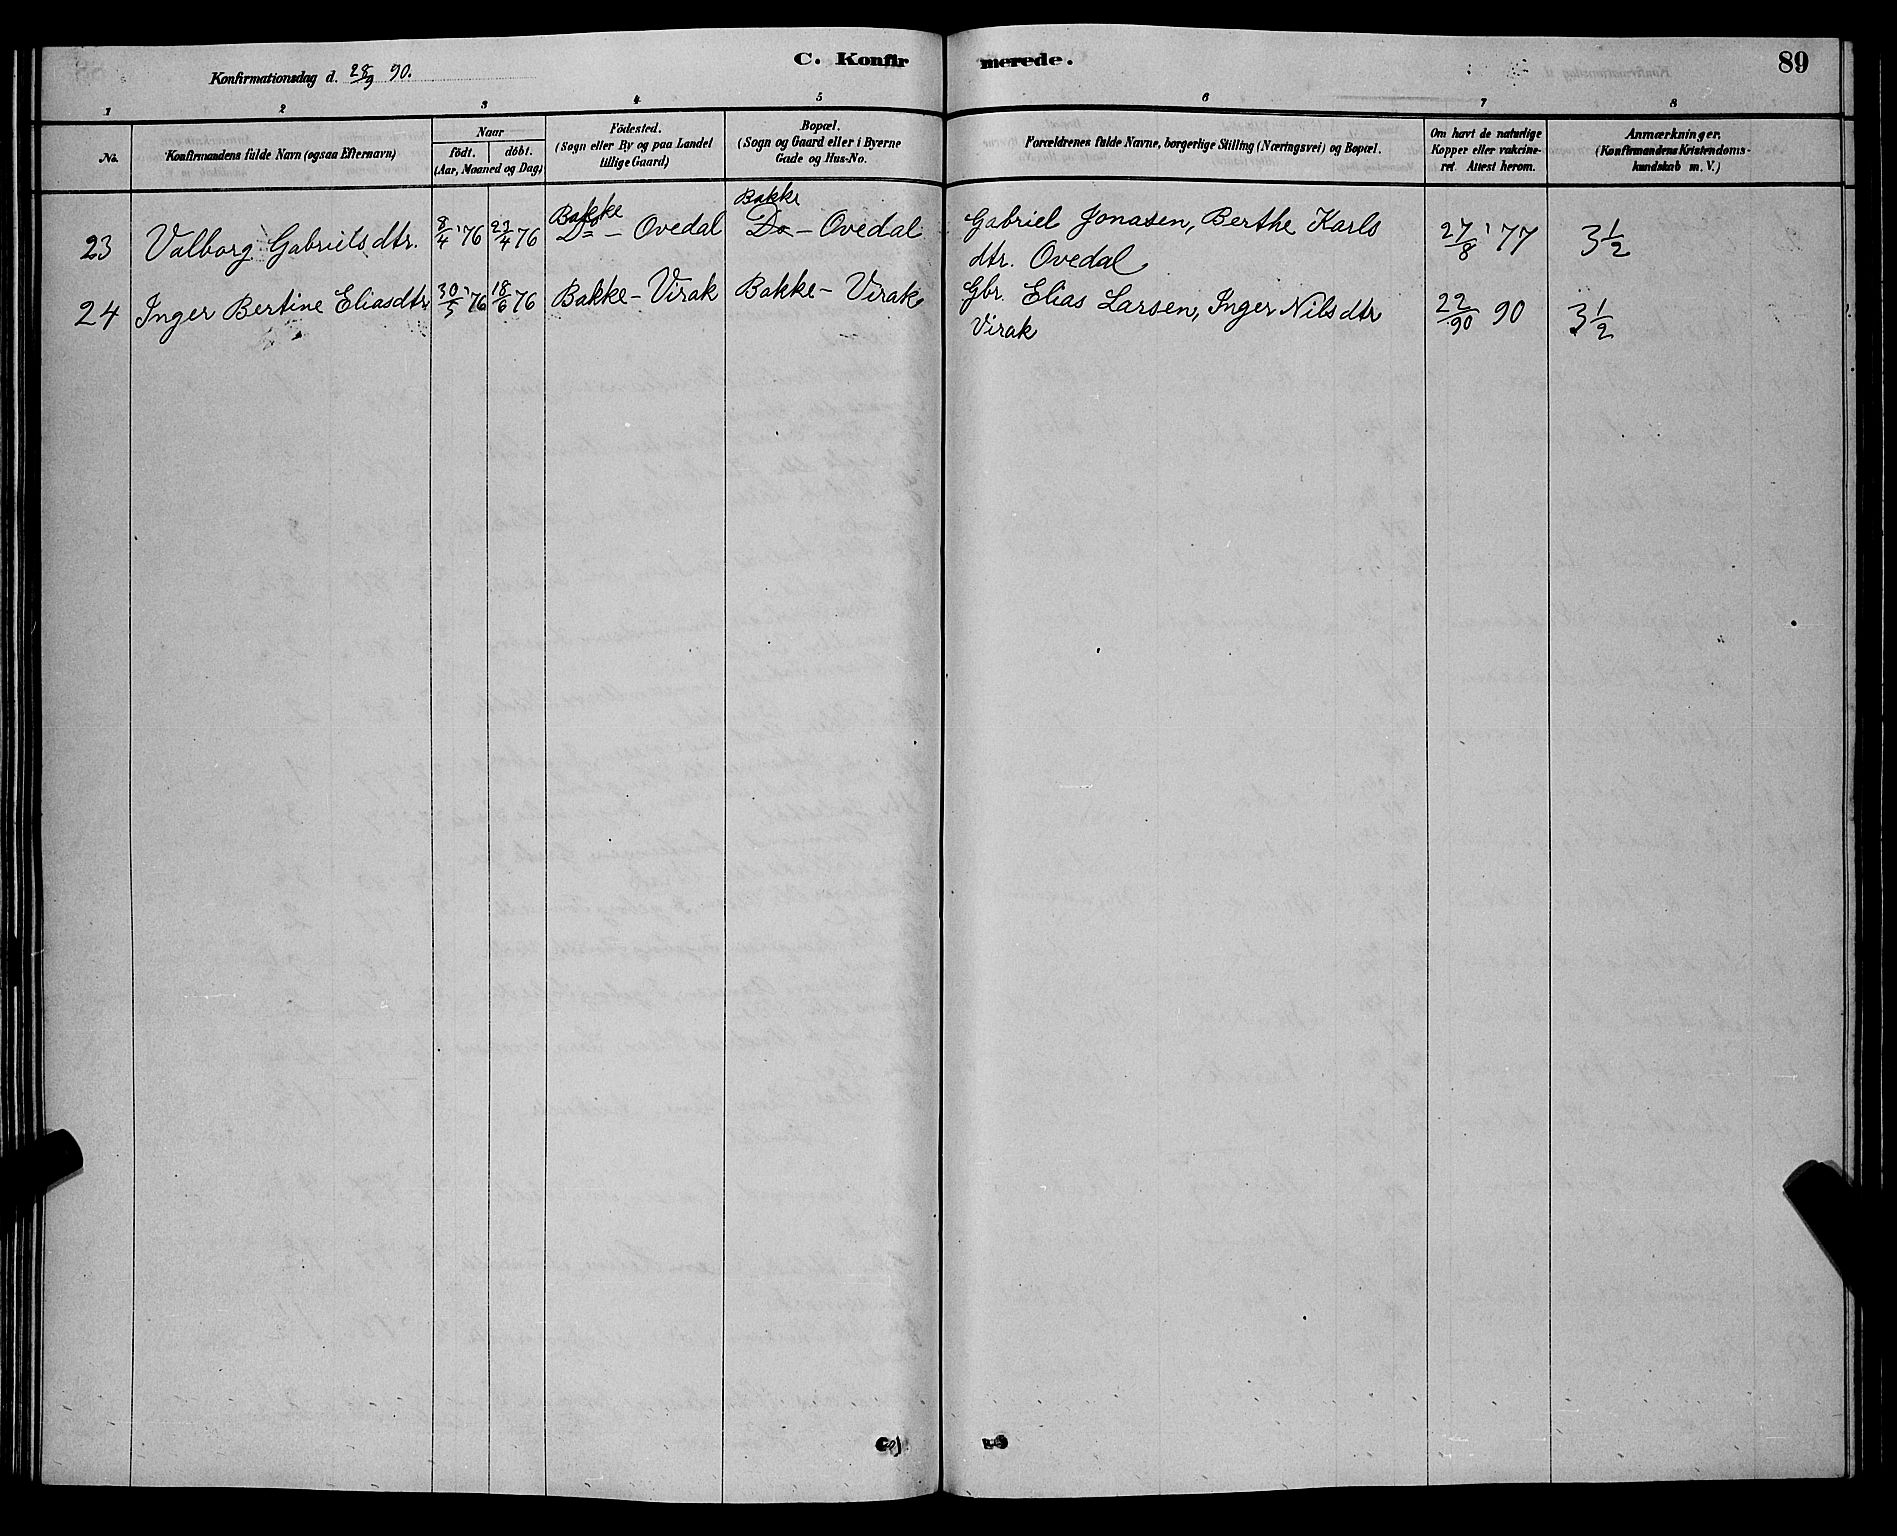 C. Konfirmerede. 89
Konfirmationsdag d. 28/9 90.
1 2 3 4 5 6 7 8
No. Konfirmandens fulde Navn (ogsaa Efternavn) Naar födt. döbt. (Aar, Maaned og Dag) Födested. (Sogn eller By og paa Landet tillige Gaard) Bopæl. (Sogn og Gaard eller i Byerne Gade og Hus-No. Forældrenes fulde Navne, borgerlige Stilling (Næringsvei) og Bopæl. Om havt de naturlige Kopper eller vakcineret. Attest herom. Anmærkninger. (Konfirmandens Kristendomskundskab m. V.)
Bakke Bakke
23 Valborg Gabrielsdtr. 8/4 '76 23/4 76 Do - Ovedal Do - Ovedal Gabriel Jonasen, Berthe Karls 27/8 '77 3 1/2
dtr. Ovedal
24 Inger Bertine Eliasdtr 30/5 '76 18/6 76 Bakke - Virak Bakke - Virak Gbr. Elias Larsen, Inger Nilsdtr 22/90 90 3 1/2
Virak